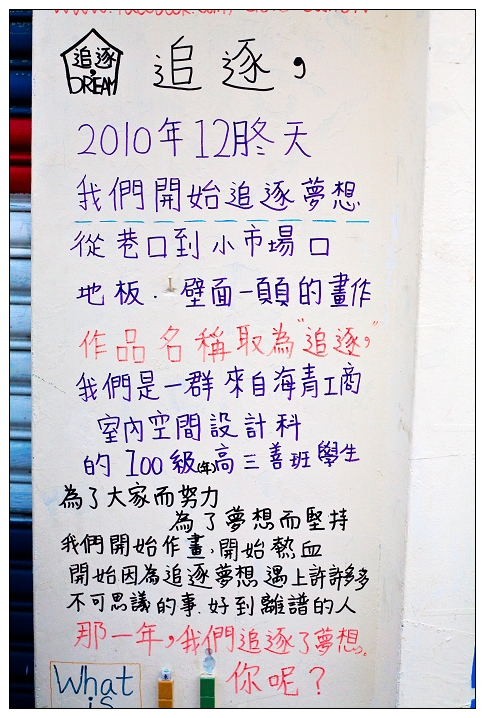 追逐
DREAM
追逐，
2010年12月冬天
我們開始追逐夢想
從巷口到小市場口
地板.壁面一頁頁的畫作
作品名稱取為"追逐，"
我們是一群來自海青工商
室內空間設計科
的100級(年)高三善班學生
為了大家而努力
為了夢想而堅持
我們開始作畫,開始熱血
開始因為追逐夢想遇上許許多多
不可思議的事.好到離譜的人
那一年，我們追逐了夢想。
你呢？
What
is